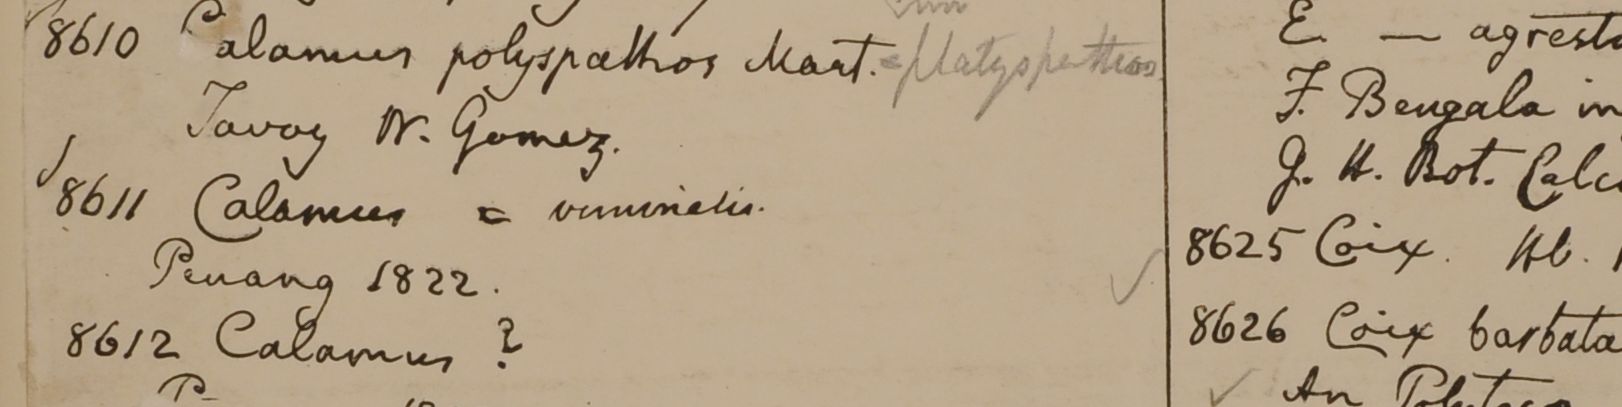 8610 Calamus polyspathos Mart. = platyspathos
Tavoy W. Gomez.
8611 Calamus = viminalis.
Penang 1822.
8612 Calamus ?
E. — agresti
F. Bengala in
G. H. Bot. Calc
8625 Coix. Hb.
8626 Coix barbata
An